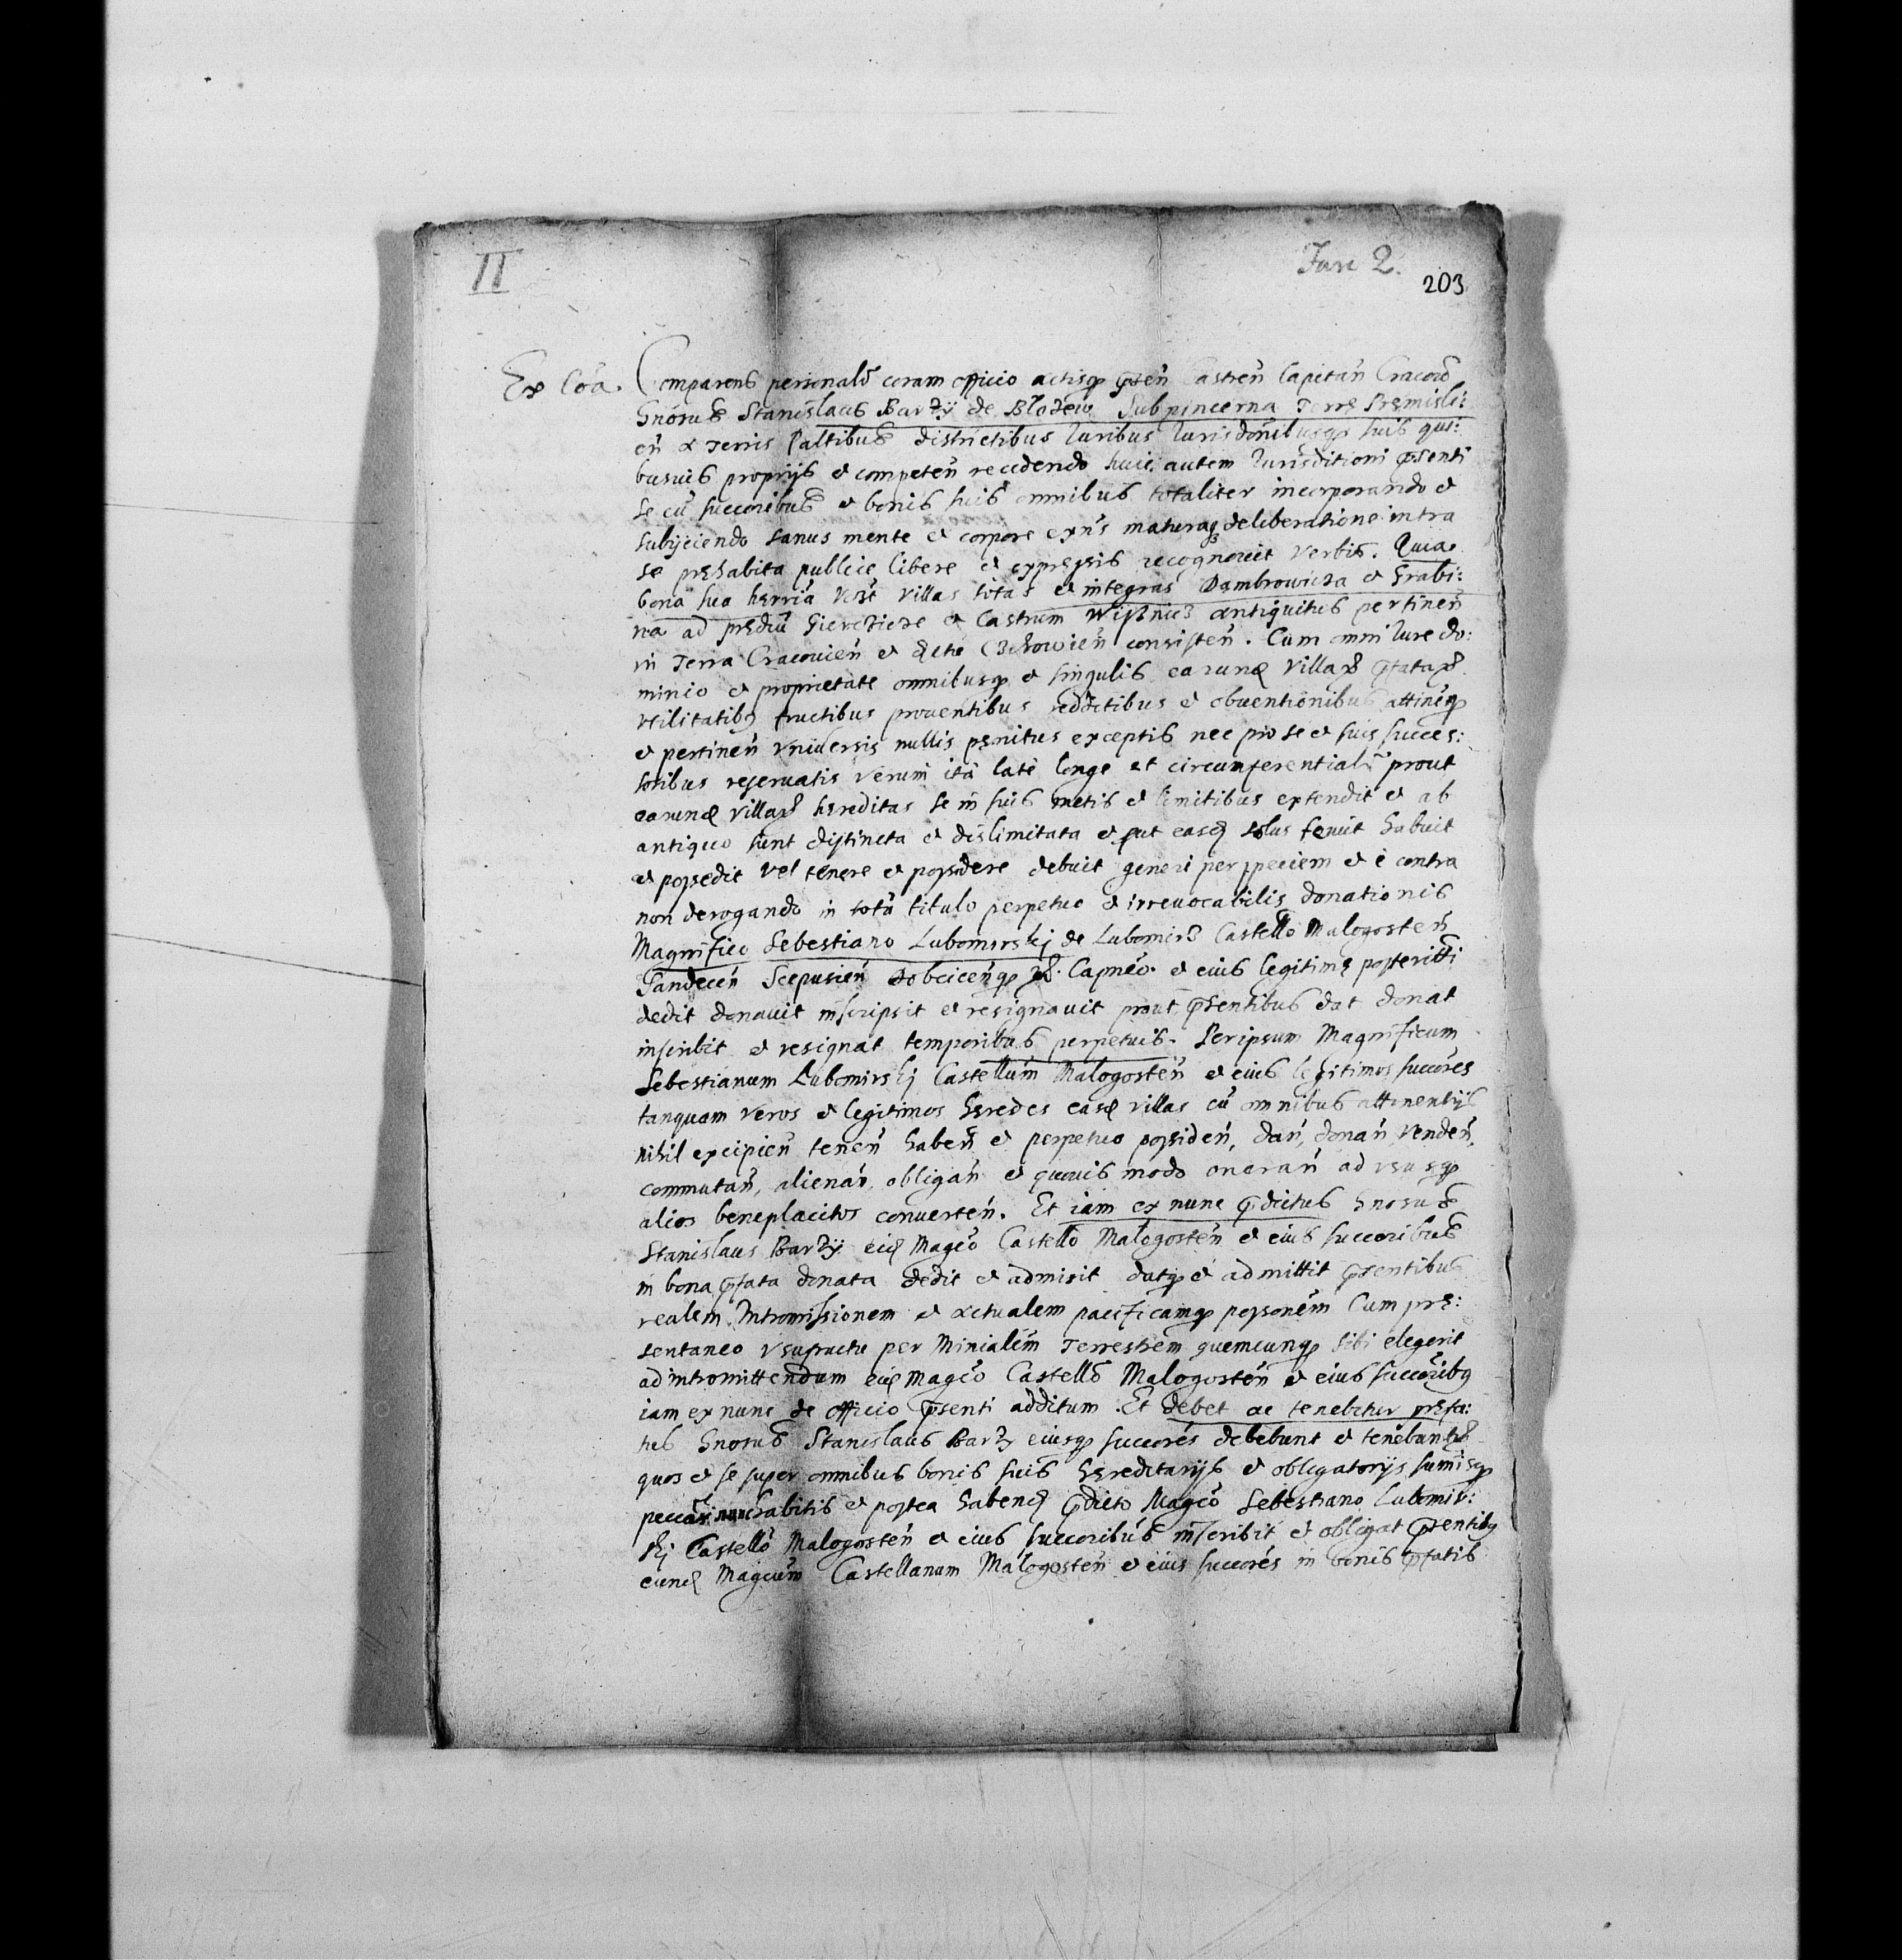 II
Fasc 2.
203
Ex Coa. Comparens personalr̃ coram officio actisq̃ p̃sen̄ Castren̄ Capitan̄ Cracow̄
Gnosus Stanislaus Barzÿ de Blozew Subpincerna Terrę Pręmisli:
en̄ a Terris Paltibus districtibus Iuribus Iurisdonibusq̃ suis qui:
busuis proprijs et competen̄ recedendo huic autem Iurisditioni p̃senti
se cū succoribus et bonis suis omnibus totaliter incorporando et
subijciendo sanus mente et corpore exn̄s maturaq̃ deliberatione intra
se pręhabita publice libere et expressis recognouit verbis. Quia
bona sua herria vdzt villas totas et integras Dambrowicza et Grabi:
na ad prędiū Gierczicze et Castrum Wisznicz antiquitus pertinen̄
in Terra Cracouien̄ et dctu Czchowien̄ consisten̄. Cum omni Iure do:
minio et proprietate omnibusq̃ et singulis earund villar̃ p̃fatar̃
vtilitatibq fructibus prouentibus redditibus et obuentionibus attinēq̃
et pertinen̄ vniuersis nullis pęnitus exceptis nec pro se et suis succes:
soribus reseruatis verum ità latè longè et circumferentialr̃ prout
earund villar̃ hęreditas se in suis metis et limitibus extendit et ab
antiquo sunt distincta et dislimitata et put easd solus tenuit habuit
et possedit vel tenere et possidere debuit generi per speciem et è contra
non derogando in totū titulo perpetuo et irreuocabilis donationis
Magnifico Sebestiano Lubomirskj de Lubomirz Castellō Malogosten̄
Sandecen̄ Scepusien̄ Dobcicen̄q̃ zc. Capnēo. et eius legitimę posteritti
dedit donauit inscripsit et resignauit prout p̃sentibus dat donat
inscribit et resignat temporibus perpetuis. Per ipsum Magnificum
Sebestianum Lubomirskj Castellum̄ Malogosten̄ et eius legitimos succores
tanquam veros et legitimos hęredes easd villas cū omnibus attinentijs
nihil excipien̄ tenen̄ haben̄ et perpetuo possiden̄, dan̄, donan̄, venden̄,
commutan̄, alienan̄, obligan̄ et quouis modo oneran̄ ad vsusq̃
alios beneplacitos conuerten̄. Et iam ex nunc p̃dictus Gnosus
Stanislaus Barzÿ eid Magcō Castellō Malogosten̄ et eius succoribus
in bona p̃fata donata dedit et admisit datq̃ et admittit p̃sentibus
realem Intromissionem et actualem pacificamq̃ possonem̄ Cum prę:
sentaneo vsufructu per Minialem̄ Terrestrem quemcunq̃ sibi elegerit
ad intromittendum eid Magcō Castellō Malogosten̄ et eius succoribq
iam ex nunc de officio p̃senti additum. Et debet ac tenebitur pręfa:
tus Gnosus Stanislaus Barzÿ eiusq̃ succores debebunt et tenebuntr̃
quos et se super omnibus bonis suis hęreditarijs et obligatorijs sumisq̃
habitis et postea habend p̃dicto Magcō Sebestiano Lubomir:
skj Castellō Malogosten̄ et eius succoribus inscribit et obligat p̃sentibq
eund Magcum̄ Castellanum Malogosten̄ et eius succores in bonis p̃fatis